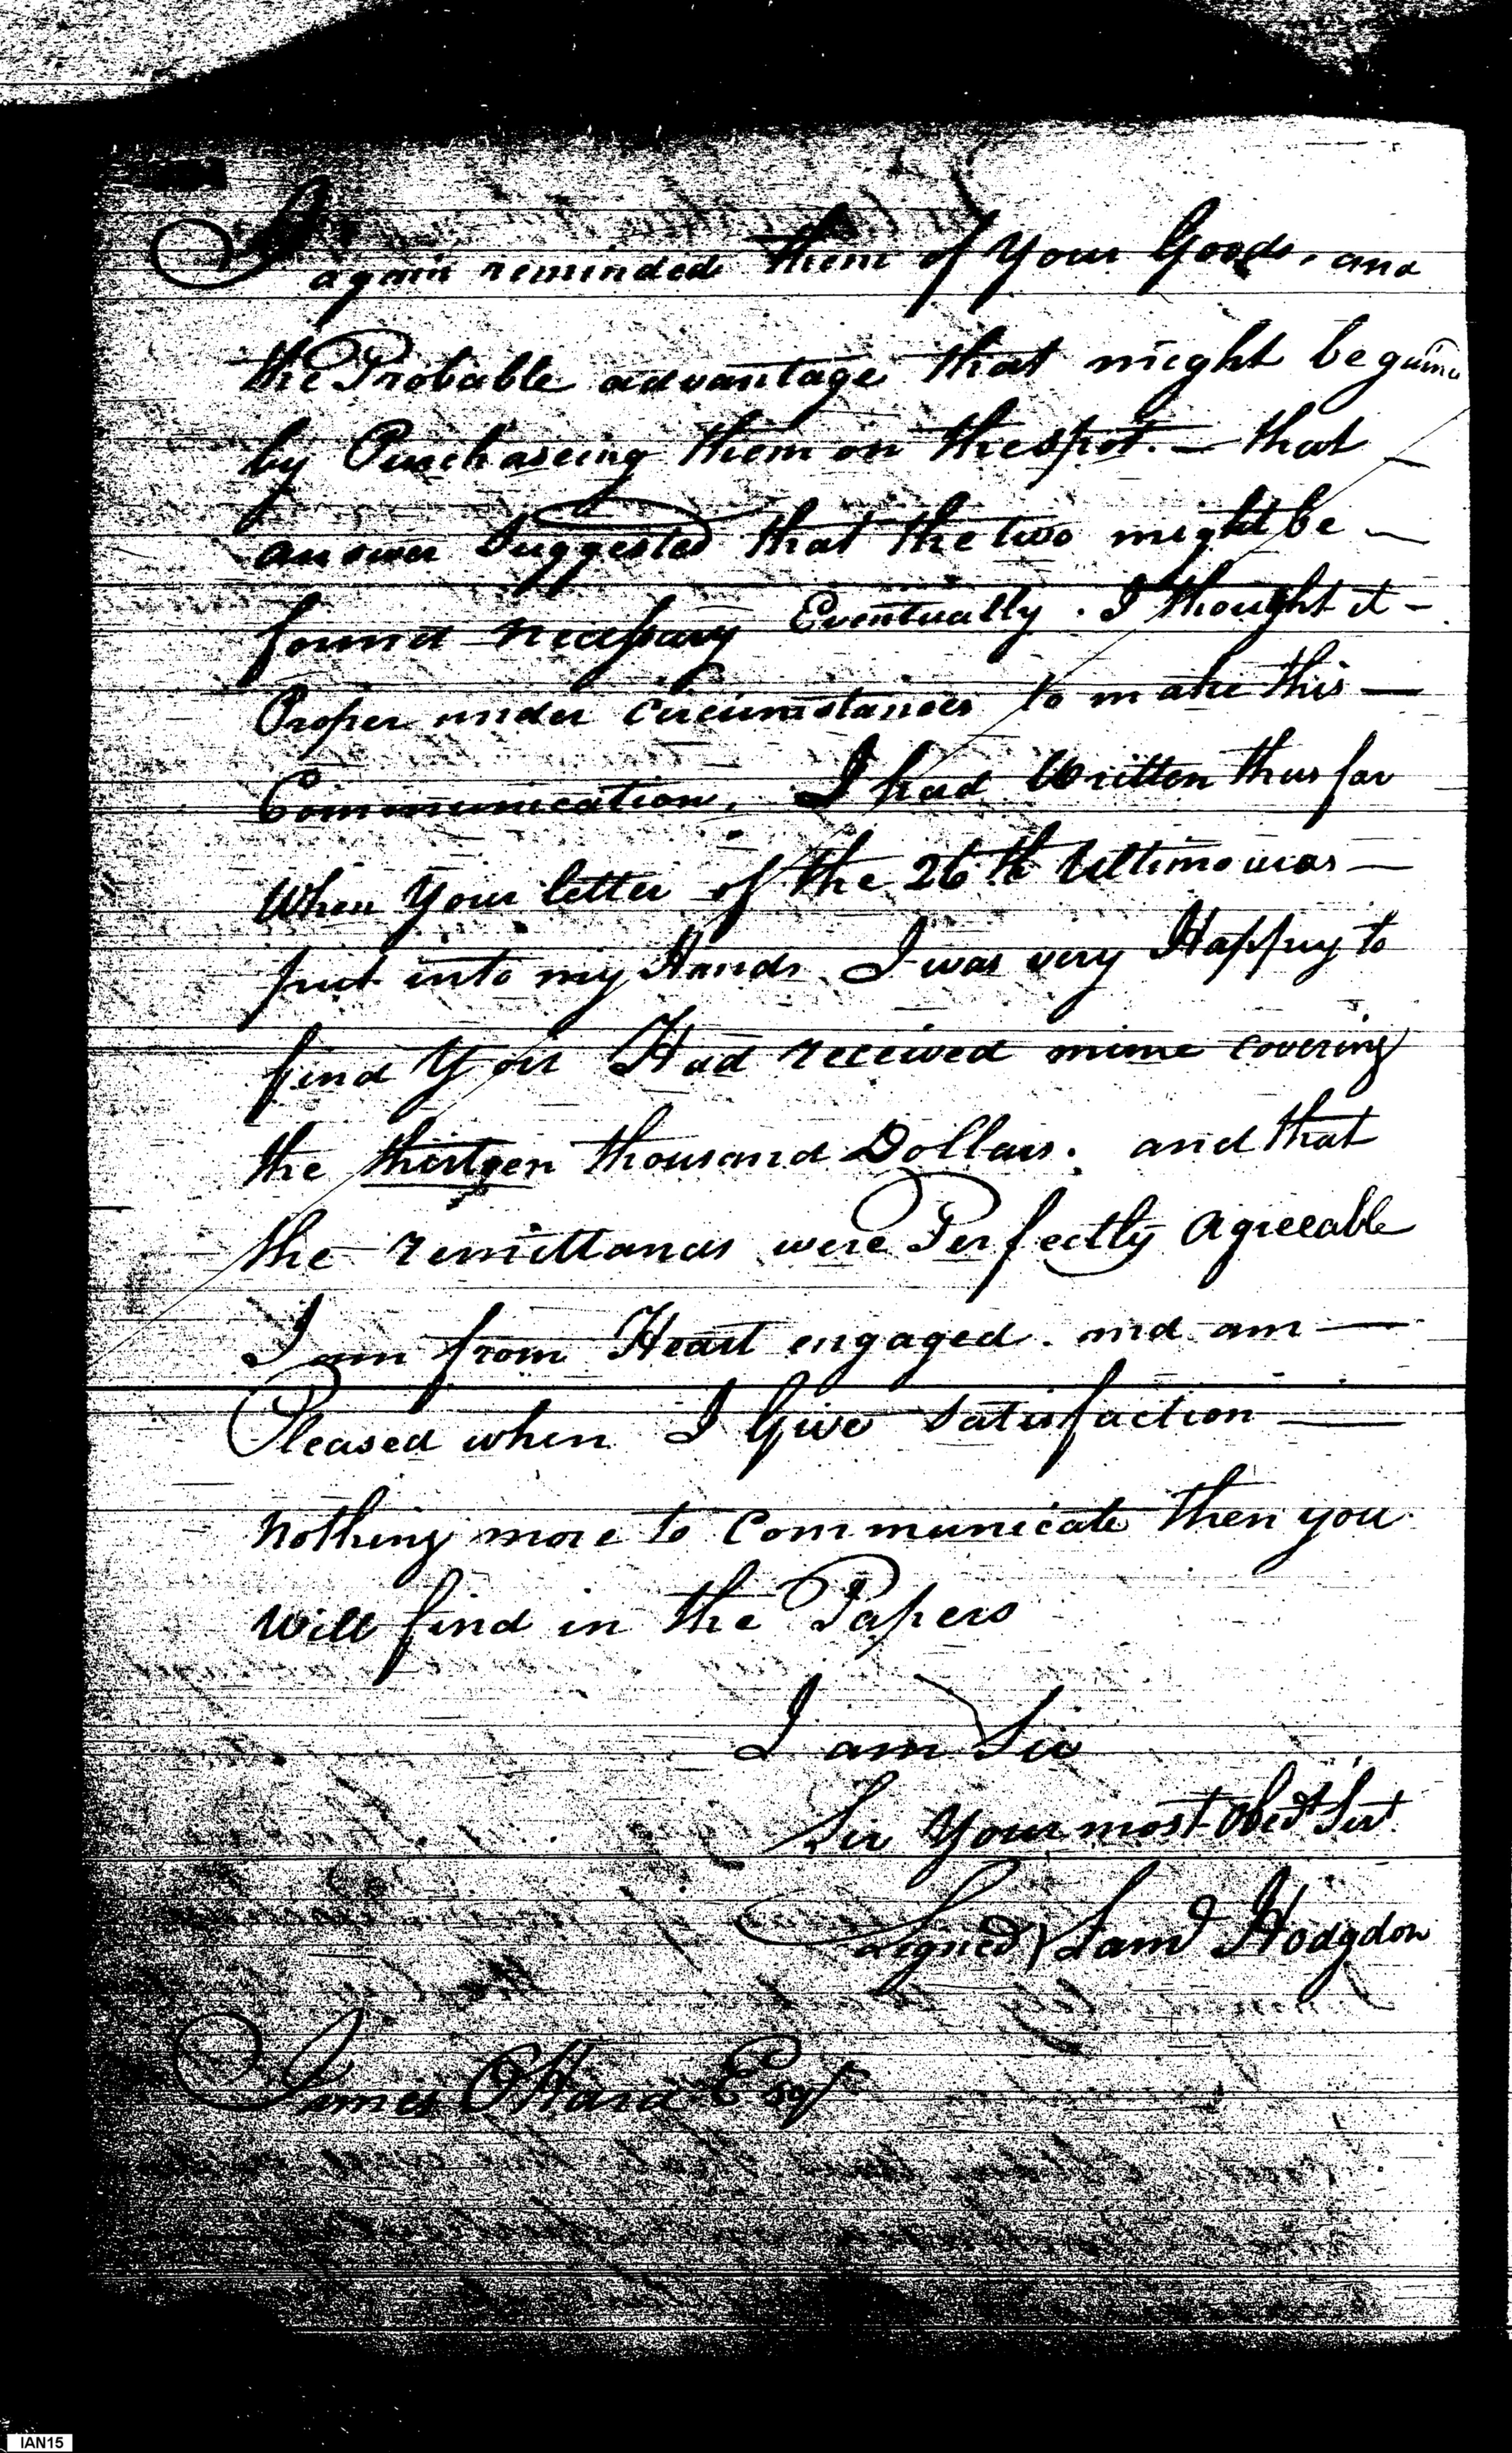 I again reminded them of Your Goods, and
the Probable advantage that might be gain
by Purchaseing them on the spot. — that —
answer Suggested that the two might be —
found necessary Eventually. I thought it —
Proper under circumstances to make this —
Communication, I had Written thus far
When Your letter of the 26th Ultimo was —
put into my Hands I was very Happy to
find You Had received mine covering
the thirteen thousand Dollars. and that
the remittances were Perfectly agreeable
I am from Heart engaged. and am —
Pleased when I Give satisfaction —
nothing more to Communicate then you
will find in the Papers
I am Sir
Sir Your most Obedt Sert
signed Saml Hodgdon
James OHara Esqr
IAN15